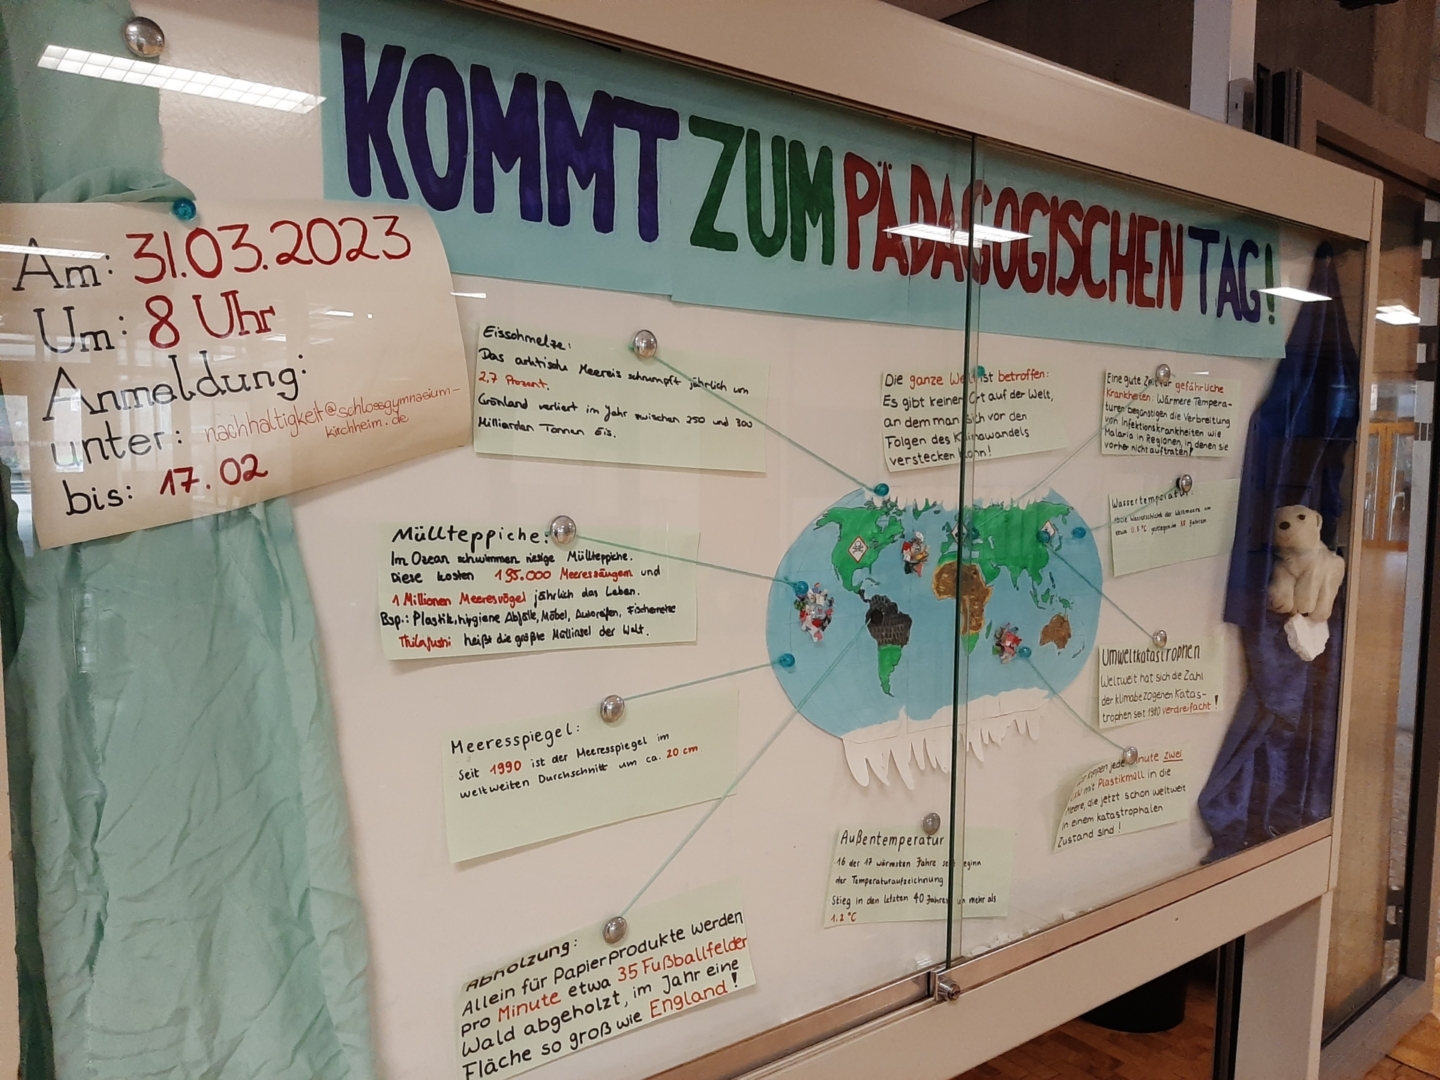 KOMMT ZUM PÄDAGOGISCHEN TAG!
Am: 31.03.2023
Um: 8 Uhr
Anmeldung:
unter: nachhaltigkeit@schlossgymnasium-
kirchheim.de
bis: 17.02
Eisschmelze:
Das arktische Meereis schrumpft jährlich um
2,7 Prozent.
Grönland verliert im Jahr zwischen 250 und 300
Milliarden Tonnen Eis.
Die ganze Welt ist betroffen:
Es gibt keinen Ort auf der Welt,
an dem man sich vor den
Folgen des Klimawandels
verstecken kann!
Eine gute Zeit für gefährliche
Krankheiten: Wärmere Tempera-
turen begünstigen die Verbreitung
von Infektionskrankheiten wie
Malaria in Regionen, in denen sie
vorher nicht auftraten!
Wassertemperatur:
Wasserschicht der Weltmeere um
etwa 0,5 °C gestiegen in Jahren
Müllteppiche:
Im Ozean schwimmen riesige Müllteppiche.
Diese kosten 135.000 Meeressäugern und
1 Millionen Meeresvögel jährlich das Leben.
Bsp.: Plastik, hygiene Abfälle, Möbel, Autoreifen, Fischernetze
Thilafushi heißt die größte Müllinsel der Welt.
Umweltkatastrophen
Weltweit hat sich die Zahl
der klimabezogenen Katas-
trophen seit 1980 verdreifacht!
Meeresspiegel:
Seit 1990 ist der Meeresspiegel im
weltweiten Durchschnitt um ca. 20 cm
jede Minute zwei
mit Plastikmüll in die
Meere, die jetzt schon weltweit
in einem katastrophalen
Zustand sind!
Außentemperatur
16 der 17 wärmsten Jahre seit Beginn
der Temperaturaufzeichnung
Stieg in den letzten 40 Jahren um mehr als
1.2 °C
Abholzung:
Allein für Papierprodukte werden
pro Minute etwa 35 Fußballfelder
Wald abgeholzt, im Jahr eine
Fläche so groß wie England!